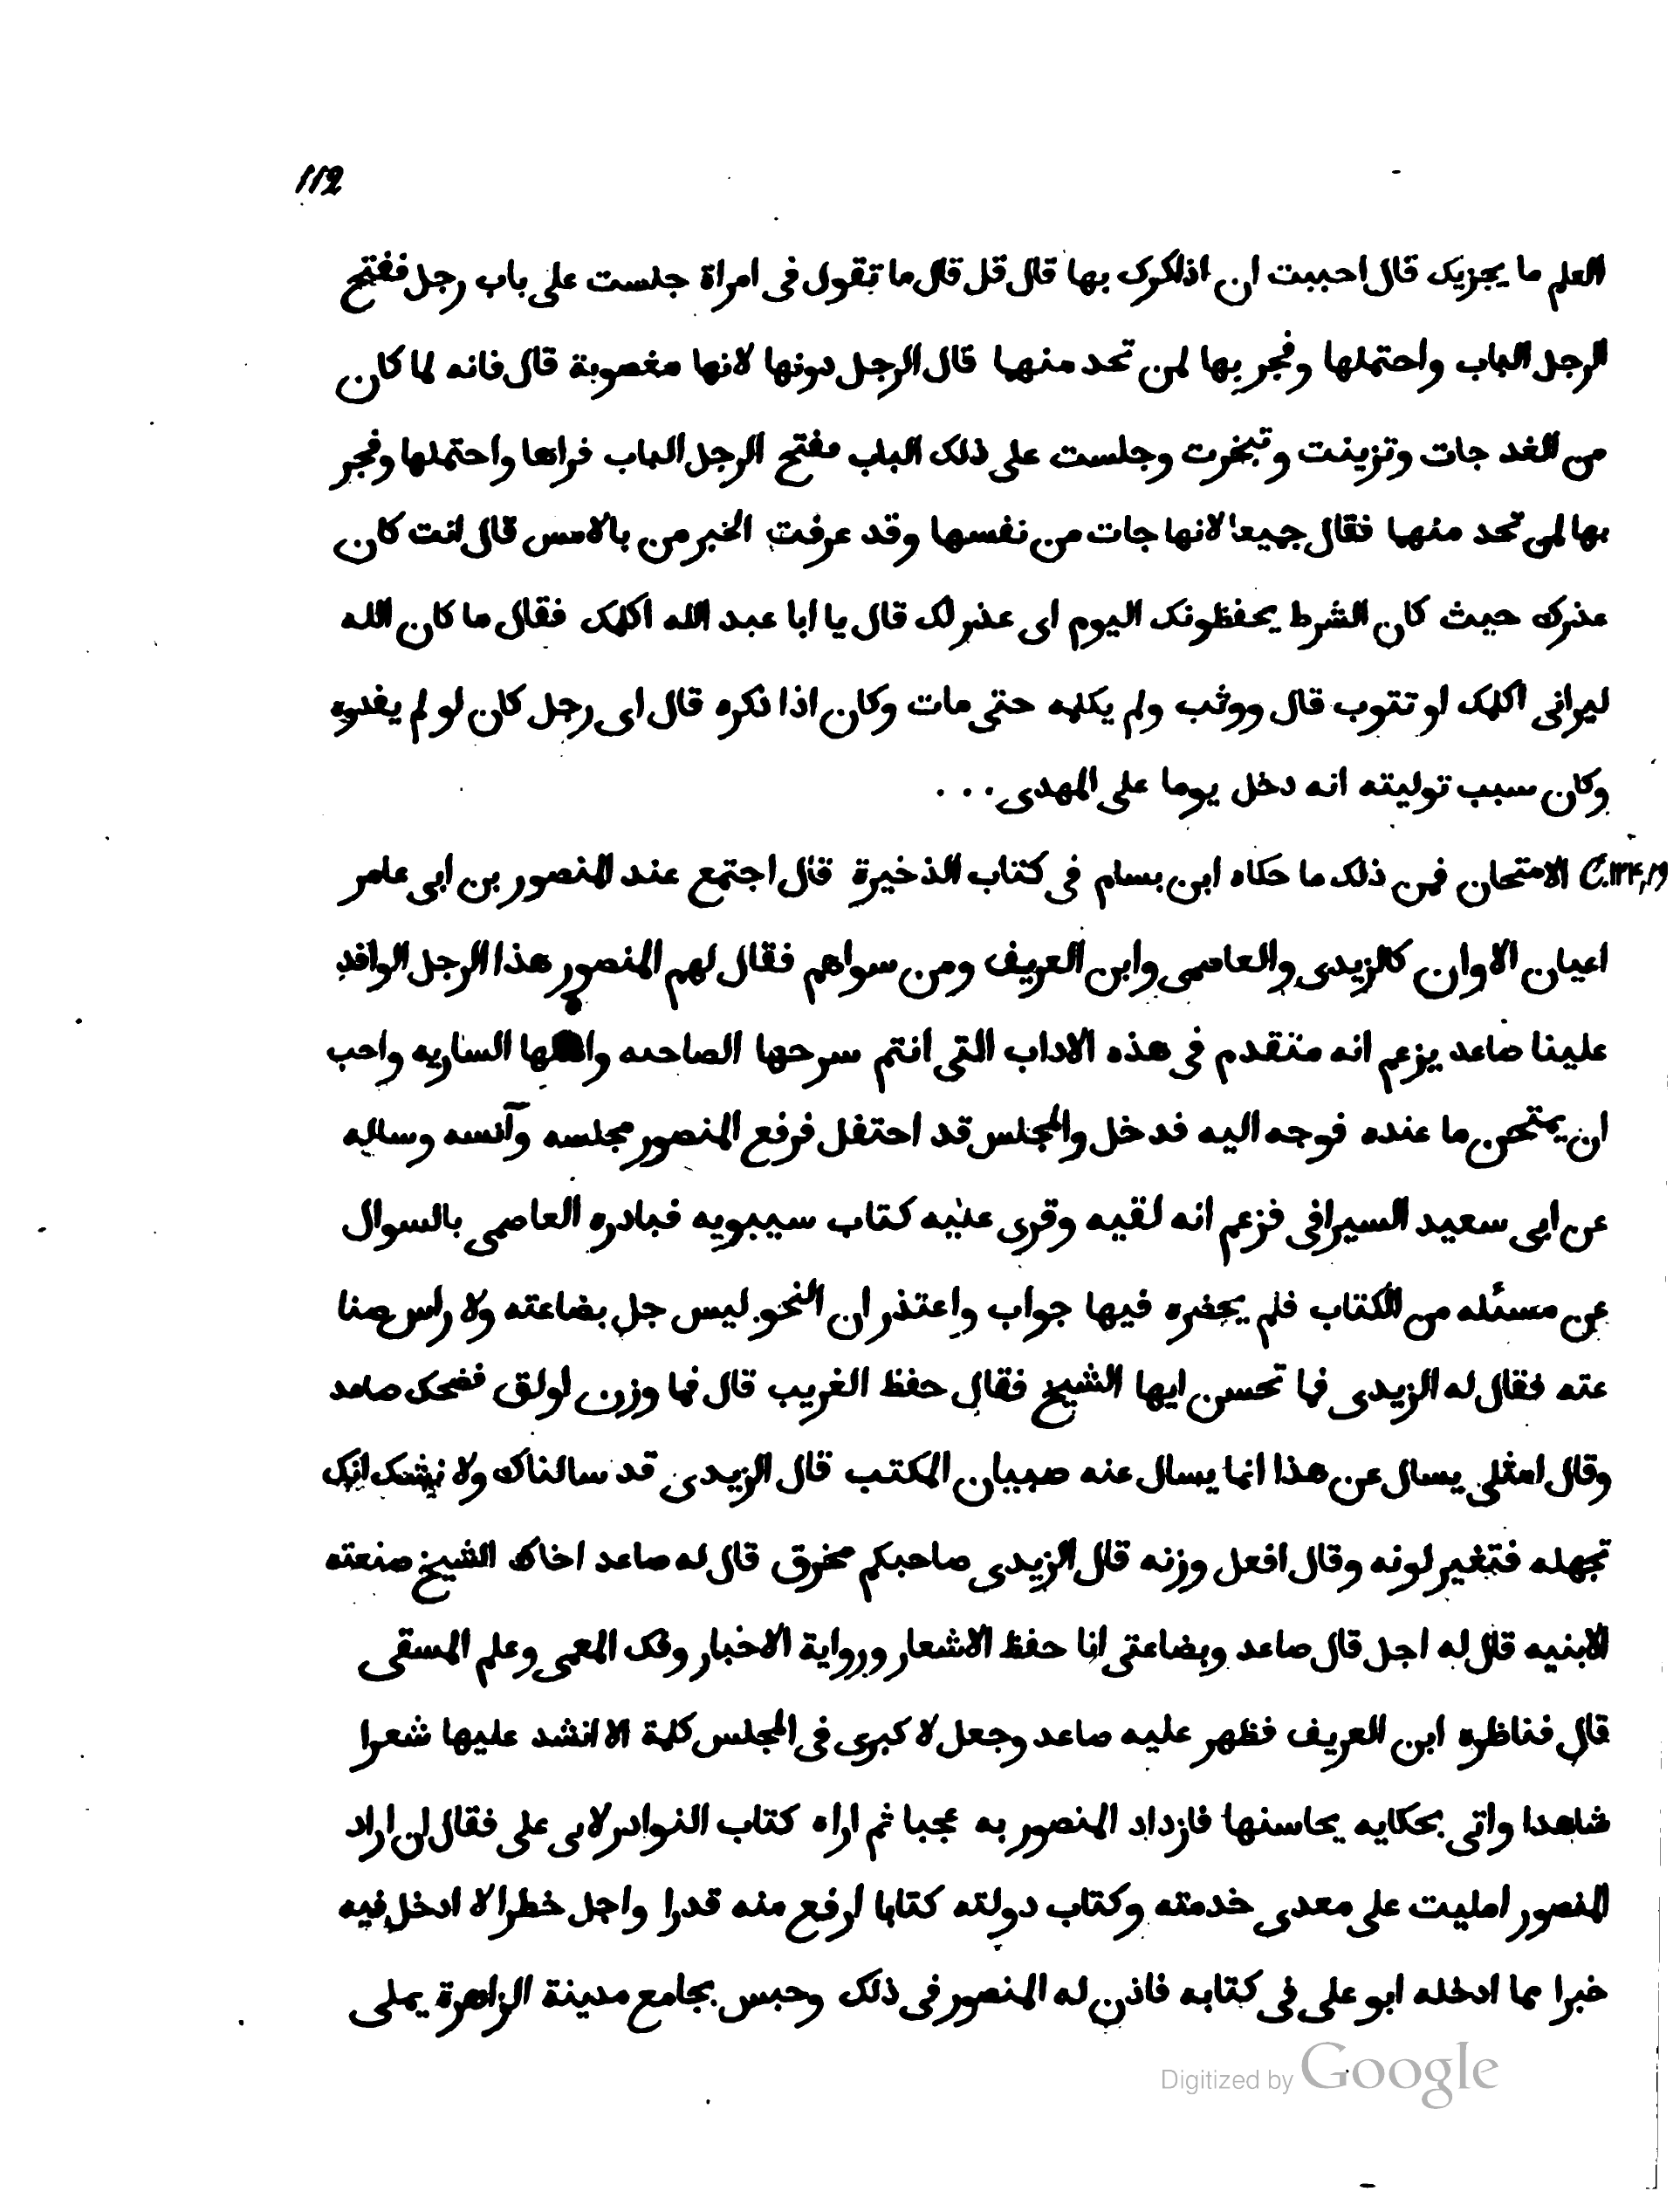 112
العلم ما يجزيك قال احببت ان اذاكرك بها قال قل قال ما تقول فى امراة جلست على باب رجل ففتح
الرجل الباب واحتملها وفجر بها لمن تحد منهما قال الرجل دونها لانها مغصوبة قال فانه لما كان
من الغد جات وتزينت وتبخرت وجلست على ذلك الباب ففتح الرجل الباب فراها واحتملها وفجر
بها لمن تحد منهما فقال جميعا لانها جات من نفسها وقد عرفت الخبر من بالامس قال انت كان
عذرك حيث كان الشرط يحفظونك اليوم اى عذر لك قال يا ابا عبد الله اكلمك فقال ما كان الله
ليرانى اكلمك او تتوب قال ووثب ولم يكلمه حتى مات وكان اذا ذكره قال اى رجل كان لو لم يفسدوه
وكان سبب توليته انه دخل يوما على المهدى . . .
C.١٢٤,٢٩ الامتحان فمن ذلك ما حكاه ابن بسام فى كتاب الذخيرة قال اجتمع عند المنصور بن ابى عامر
اعيان الاوان كالزيدى والعاصمى وابن العريف ومن سواهم فقال لهم المنصور هذا الرجل الوافد
علينا صاعد يزعم انه متقدم فى هذه الاداب التى انتم سرحها الصاحه واهلها الساريه واحب
ان يمتحن ما عنده فوجه اليه فدخل والمجلس قد احتفل فرفع المنصور مجلسه وآنسه وساله
عن ابى سعيد السيرافى فزعم انه لقيه وقرى عليه كتاب سيبويه فبادره العاصمى بالسوال
عن مسئله من الكتاب فلم يحضره فيها جواب واعتذر ان النحو ليس جل بضاعته ولا راس صنا
عته فقال له الزيدى فما تحسن ايها الشيخ فقال حفظ الغريب قال فما وزن اولق فضحك صاعد
وقال امثلى يسال عن هذا انما يسال عنه صبيان المكتب قال الزيدى قد سالناك ولا نشك انك
تجهله فتغير لونه وقال افعل وزنه قال الزيدى صاحبكم مخرق قال له صاعد اخاك الشيخ صنعته
الابنيه قال له اجل قال صاعد وبضاعتى انا حفظ الاشعار ورواية الاخبار وفك المعمى وعلم المسقى
قال فناظره ابن العريف فظهر عليه صاعد وجعل لا كبرى فى المجلس كلمة الا انشد عليها شعرا
شاهدا واتى بحكايه يحاسنها فازداد المنصور به عجبا ثم اراه كتاب النوادر لابى على فقال ان اراد
المنصور امليت على معدى خدمته وكتاب دولته كتابا ارفع منه قدرا واجل خطرا لا ادخل فيه
خبرا مما ادخله ابو على فى كتابه فاذن له المنصور فى ذلك وحبس بجامع مدينة الزاهرة يملى
Digitized by Google